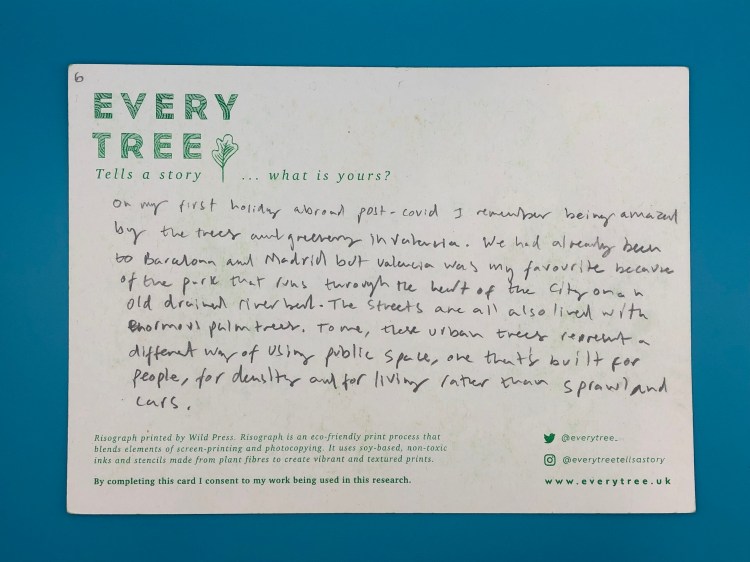 6
EVERY
TREE
Tells a story ... what is yours?
On my first holiday abroad post-covid I remember being amazed
by the trees and greenery in Valencia. We had already been
to Barcelona and Madrid but Valencia was my favourite because
of the park that runs through the heart of the City on an
old drained river bed. The Streets are all also lived with
enormous palm trees. To me, these urban trees represent a
different way of using public space, one that's built for
people, for density and for living rather than sprawl and
cars.
Risograph printed by Wild Press. Risograph is an eco-friendly print process that
blends elements of screen-printing and photocopying. It uses soy-based, non-toxic
inks and stencils made from plant fibres to create vibrant and textured prints.
By completing this card I consent to my work being used in this research.
@everytree_
@everytreetellsastory
www.everytree.uk